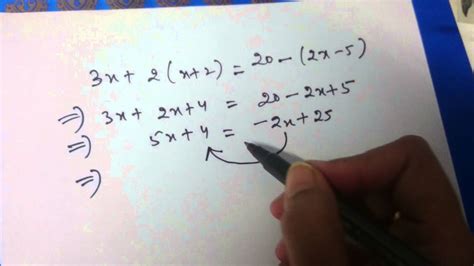 3x + 2 (x+2) = 20 - (2x-5)
⇒ 3x + 2x+4 = 20 - 2x+5
⇒ 5x+4 = -2x+25
⇒